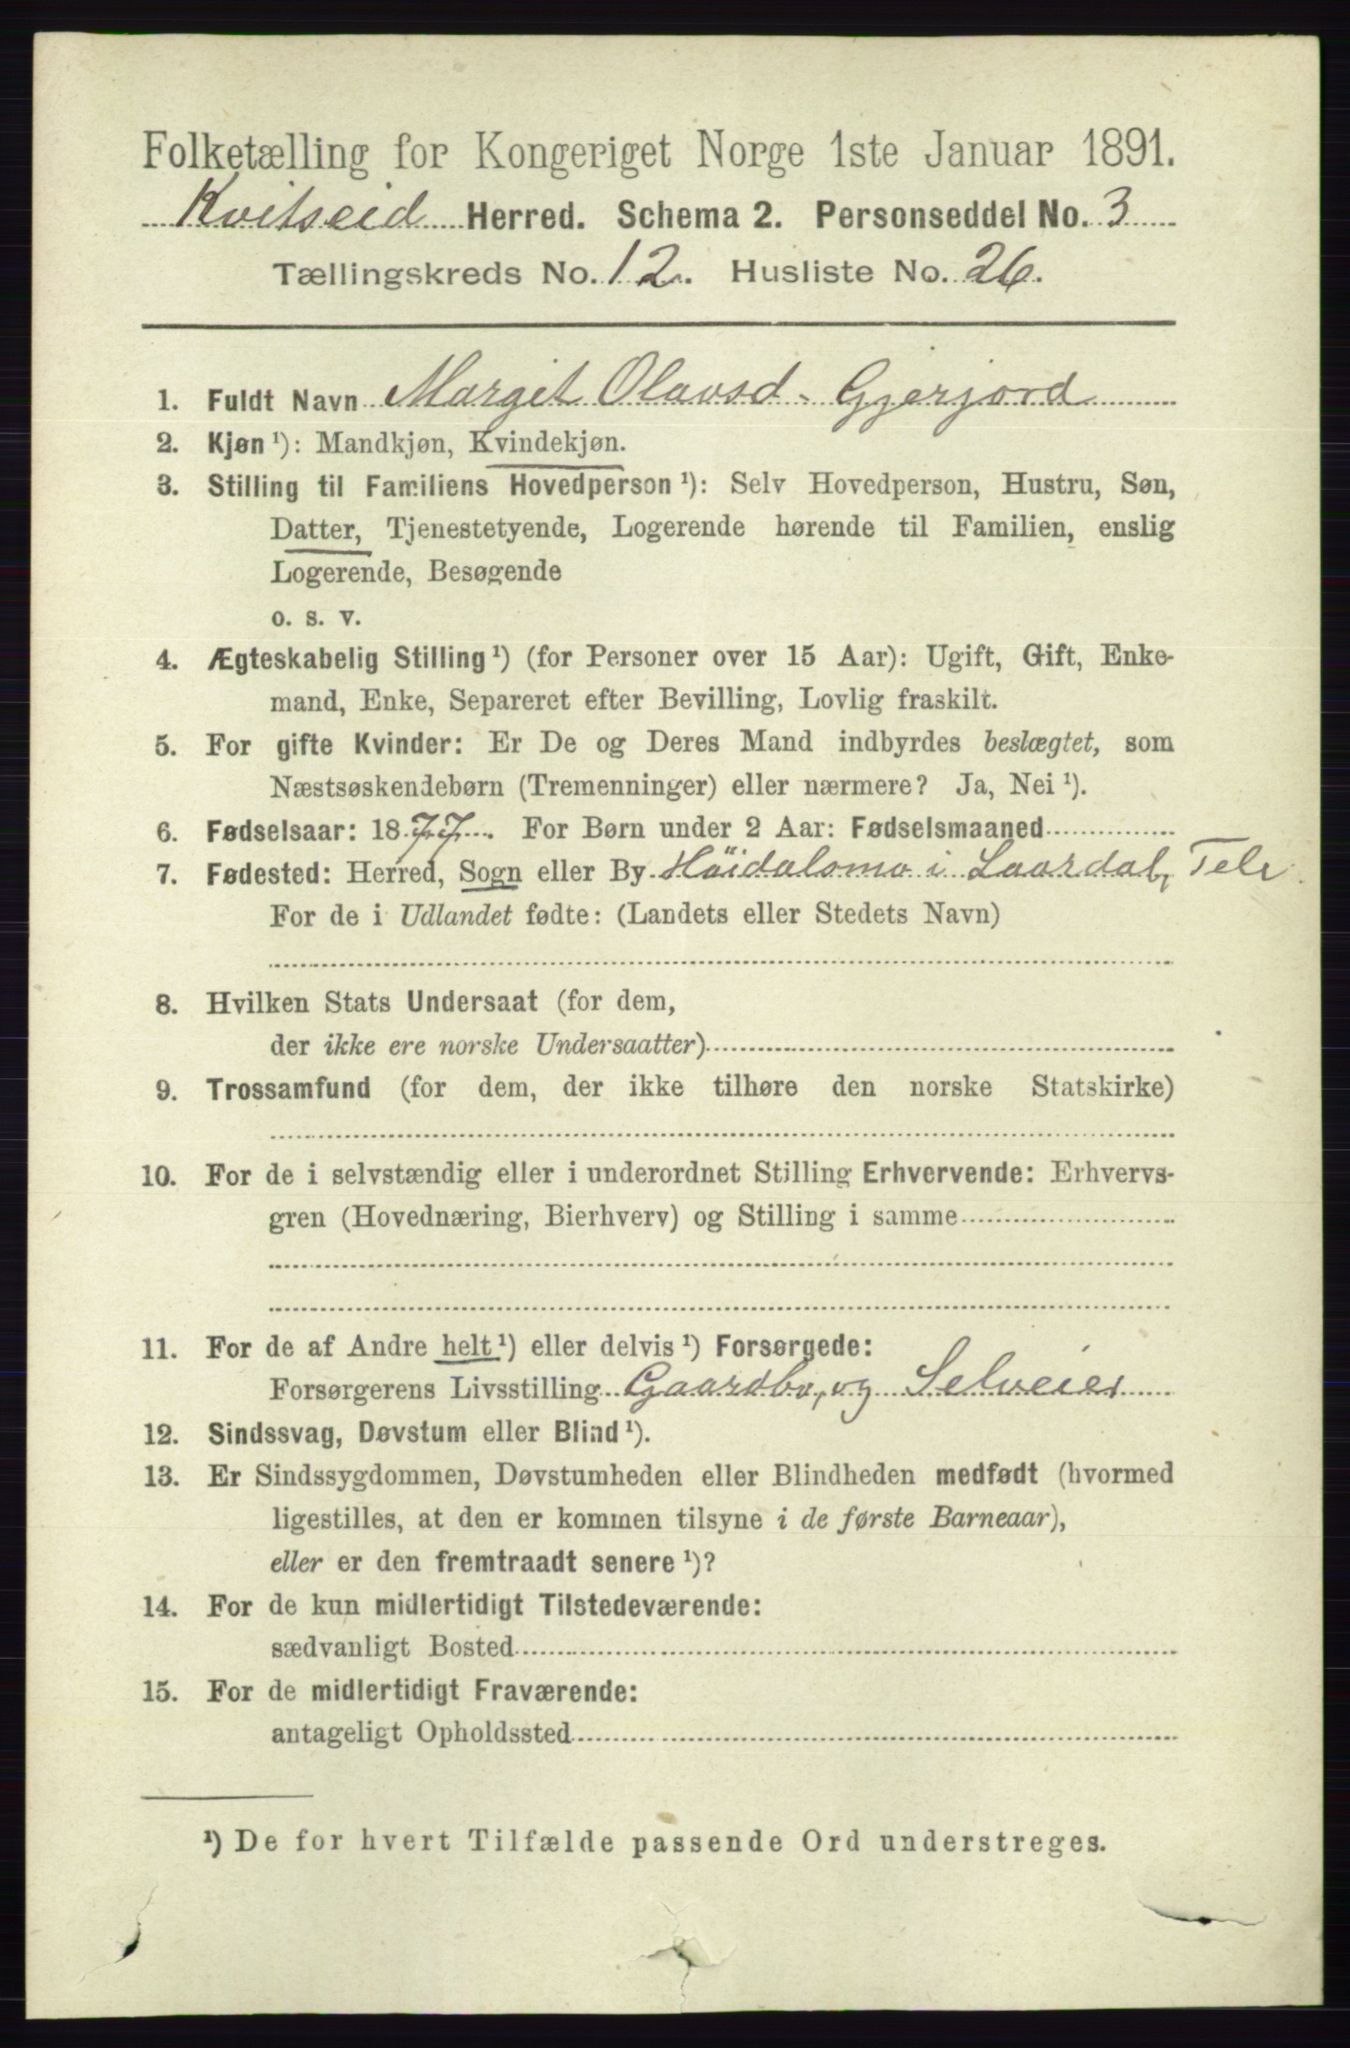 Folketælling for Kongeriget Norge 1ste Januar 1891.
Kvitseid Herred. Schema 2. Personseddel No. 3
Tællingskreds No. 12. Husliste No. 26.
1. Fuldt Navn Margit Olavsd. Gjerjord
2. Kjøn ¹): Mandkjøn, Kvindekjøn.
3. Stilling til Familiens Hovedperson ¹): Selv Hovedperson, Hustru, Søn,
Datter, Tjenestetyende, Logerende hørende til Familien, enslig
Logerende, Besøgende
o. s. v.
4. Ægteskabelig Stilling ¹) (for Personer over 15 Aar): Ugift, Gift, Enke-
mand, Enke, Separeret efter Bevilling, Lovlig fraskilt.
5. For gifte Kvinder: Er De og Deres Mand indbyrdes beslægtet, som
Næstsøskendebørn (Tremenninger) eller nærmere? Ja, Nei ¹).
6. Fødselsaar: 1877. For Børn under 2 Aar: Fødselsmaaned
7. Fødested: Herred, Sogn eller By Höidalsmo i Laardal, Tele
For de i Udlandet fødte: (Landets eller Stedets Navn)
8. Hvilken Stats Undersaat (for dem,
der ikke ere norske Undersaatter)
9. Trossamfund (for dem, der ikke tilhøre den norske Statskirke)
10. For de i selvstændig eller i underordnet Stilling Erhvervende: Erhvervs-
gren (Hovednæring, Bierhverv) og Stilling i samme
11. For de af Andre helt ¹) eller delvis ¹) Forsørgede:
Forsørgerens Livsstilling Gaardbr, og Selveier
12. Sindssvag, Døvstum eller Blind ¹).
13. Er Sindssygdommen, Døvstumheden eller Blindheden medfødt (hvormed
ligestilles, at den er kommen tilsyne i de første Barneaar),
eller er den fremtraadt senere ¹)?
14. For de kun midlertidigt Tilstedeværende:
sædvanligt Bosted
15. For de midlertidigt Fraværende:
antageligt Opholdssted
¹) De for hvert Tilfælde passende Ord understreges.